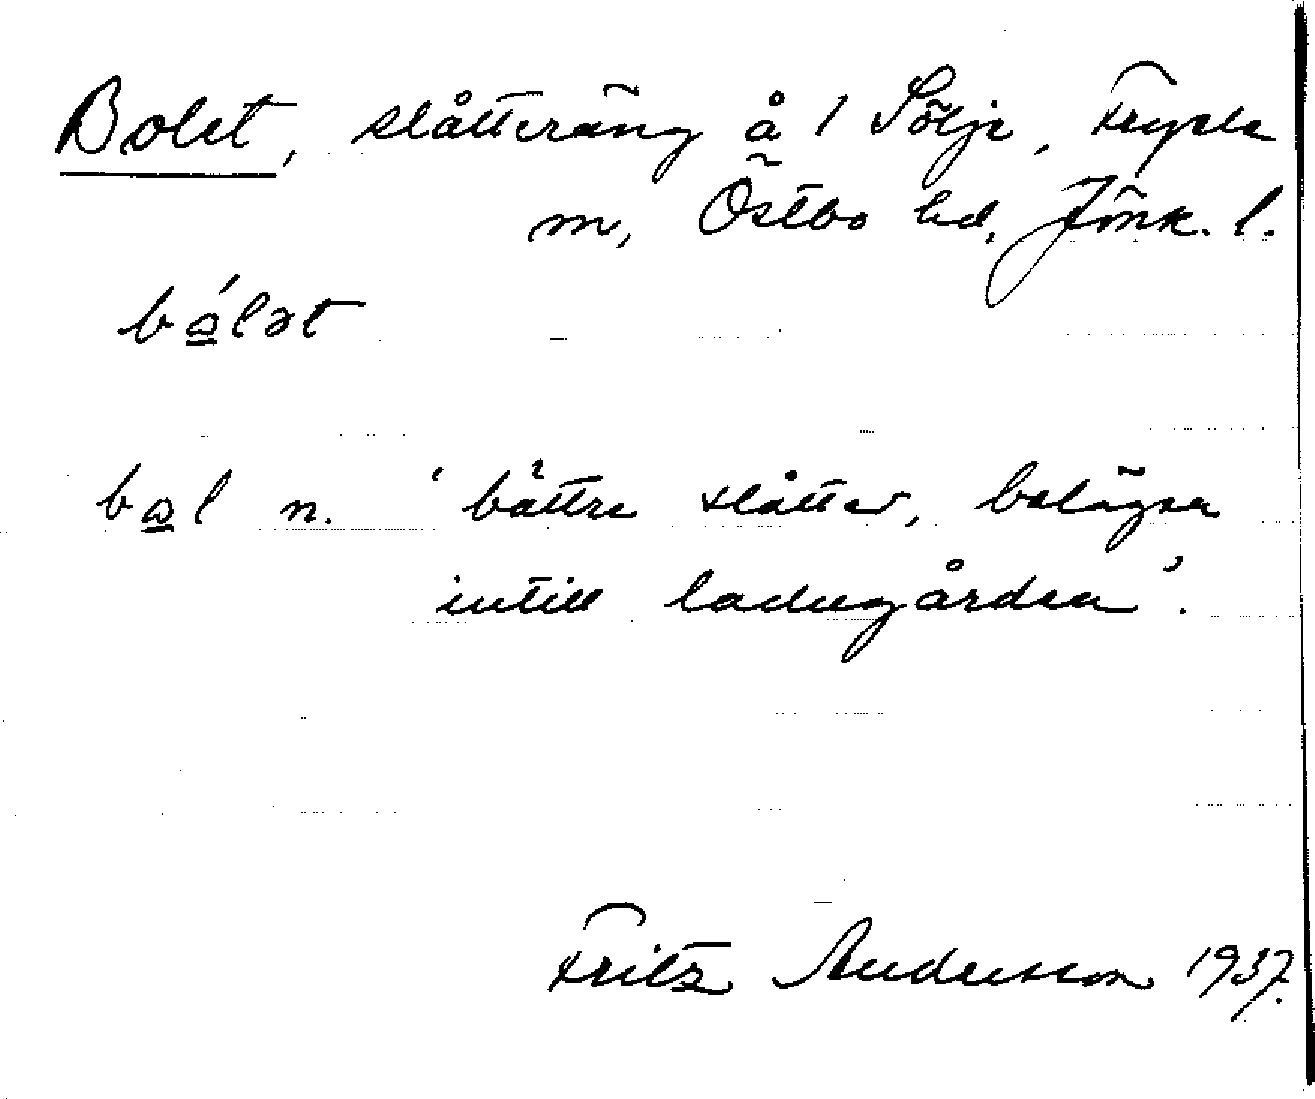 Bolet, slåtteräng å 1 Sölje, Fryele
sn, Östbo hd, Jönk. l.
bó̲lət
bo̲l n. 'bättre slåtter, belägen
intill ladugården'.
Fritz Andersson 1937.